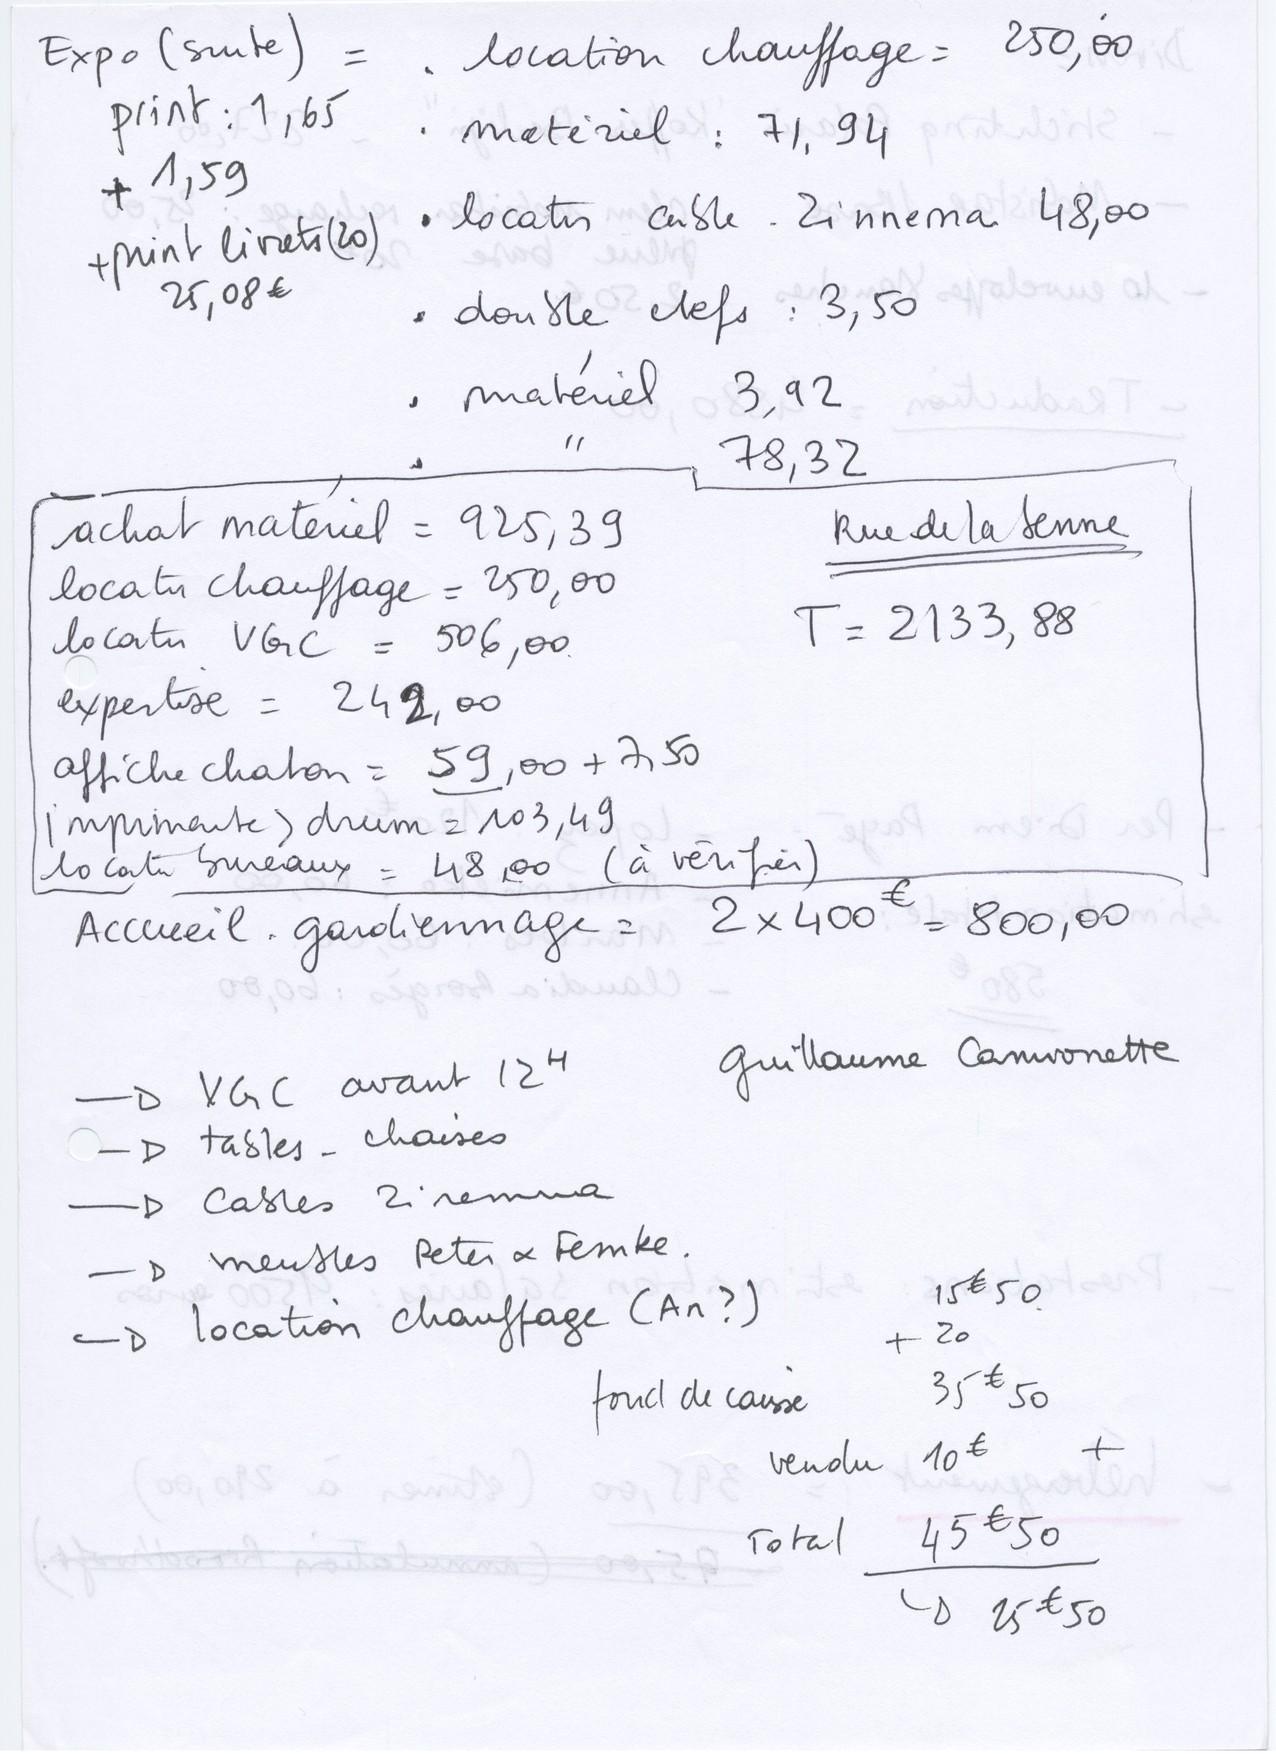 Expo (suite) = . location chauffage = 250,00
print : 1,65
+ 1,59
+ print livrets (20)
25,08 €
. matériel : 71,94
. locatn cable - Zinnema 48,00
. double clefs : 3,50
. matériel 3,92
. " 78,32
achat matériel = 925,39
locatn chauffage = 250,00
locatn VGC = 506,00
expertise = 242,00
affiche chaton = 59,00 + 7,50
imprimante > drum = 103,49
locatn bureaux = 48,00 (à vérifier)
Rue de la Senne
T = 2133,88
Accueil . gardiennage = 2 x 400 € = 800,00
Guillaume Camionette
→ VGC avant 12H
→ tables - chaises
→ Cables Zinemma
→ meubles Peter & Femke.
→ location chauffage (An ?)
15 € 50
+ 20
fond de caisse 35 € 50
vendu 10 € +
Total 45 € 50
↳ 25 € 50